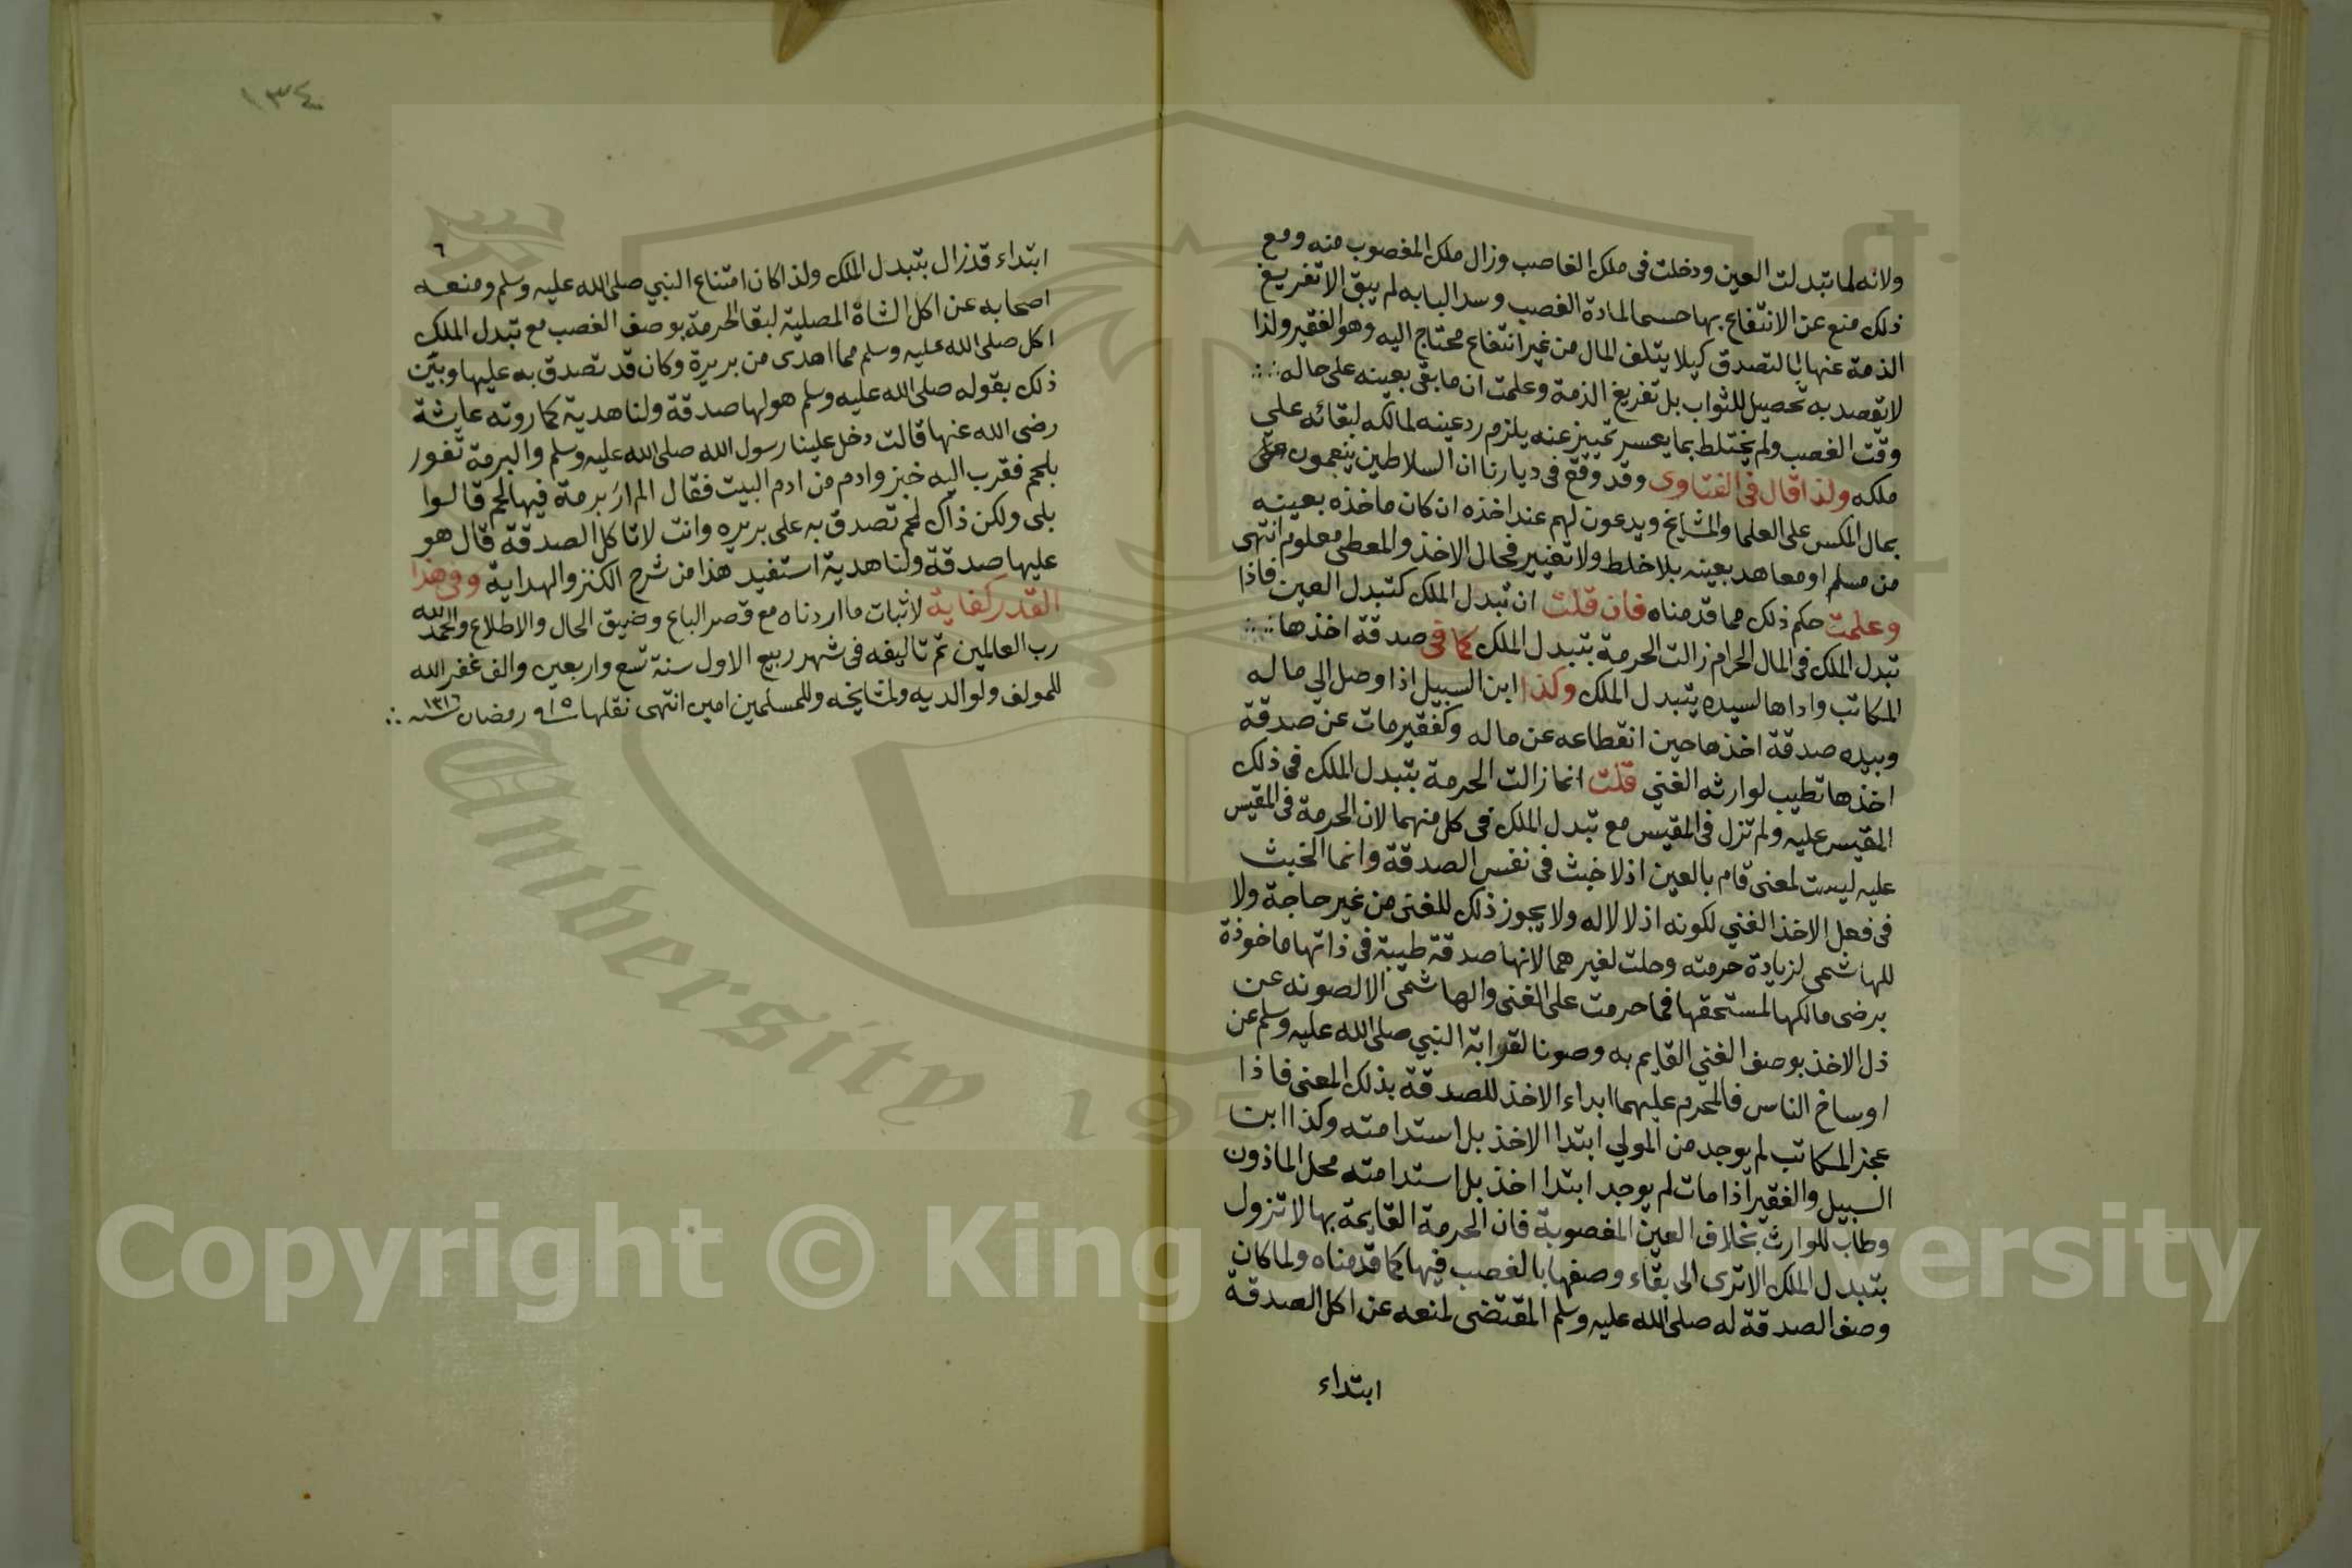 ولانه لما تبدلت العين ودخلت في ملك الغاصب وزال ملك المغصوب منه ومع
ذلك منع عن الانتفاع بها حسما لمادة الغصب وسدا لبابه لم يبق الا تفريغ
الذمة عنها بالتصدق كيلا يتلف المال من غير انتفاع محتاج اليه وهو الفقير ولذا
لا يقصد به تحصيل للثواب بل تفريغ الذمة وعلمت ان ما بقي بعينه على حاله
وقت الغصب ولم يختلط بما يعسر تمييز عنه يلزم رد عينه لمالكه لبقائه علي
ملكه ولذا قال في الفتاوى وقد وقع في ديارنا ان السلاطين ينعمون
بمال المكس على العلما والمشايخ ويدعون لهم عند اخذه ان كان ماخذه بعينه
من مسلم او معاهد بعينه بلا خلط ولا تغيير فحال الاخذ والمعطى معلوم انتهى
وعلمت حكم ذلك مما قدمناه فان قلت ان تبدل الملك كتبدل العين فاذا
تبدل الملك في المال الحرام زالت الحرمة بتبدل الملك كما في صدقة اخذها
المكاتب واداها لسيده يتبدل الملك وكذا ابن السبيل اذا وصل الي ماله
وبيده صدقة اخذها حين انقطاعه عن ماله وكفقير مات عن صدقة
اخذها تطيب لوارثه الغني قلت انما زالت الحرمة بتبدل الملك في ذلك
المقيس عليه ولم تزل في المقيس مع تبدل الملك في كل منهما لان الحرمة في المقيس
عليه ليست لمعنى قام بالعين اذ لا خبث في نفس الصدقة وانما الخبث
في فعل الاخذ الغني لكونه اذلالا له ولا يجوز ذلك للغنى من غير حاجة ولا
للهاشمى لزيادة حرمته وحلت لغيرهما لانها صدقة طيبة في ذاتها ماخوذة
برضى مالكها لمستحقها فما حرمت على الغنى والهاشمى الا لصونه عن
ذل الاخذ بوصف الغني القايم به وصونا لقرابة النبي صلى الله عليه وسلم عن
اوساخ الناس فالمحرم عليهما ابداء الاخذ للصدقة بذلك المعنى فاذا
عجز المكاتب لم يوجد من المولي ابتدا الاخذ بل استدامته وكذا ابن
السبيل والفقير اذا مات لم يوجد ابتدا اخذ بل استدامته محل الماذون
وطاب للوارث بخلاف العين المغصوبة فان الحرمة القايمة بها لا تزول
بتبدل الملك الا ترى الى بقاء وصفها بالغصب فيها كما قدمناه ولما كان
وصف الصدقة له صلى الله عليه وسلم المقتضى لمنعه عن اكل الصدقة
ابتداء
١٣٤
٦
ابتداء قد زال بتبدل الملك ولذا كان امتناع النبي صلى الله عليه وسلم ومنعه
اصحابه عن اكل الشاة المصلية لبقا الحرمة بوصف الغصب مع تبدل الملك
اكل صلى الله عليه وسلم مما اهدى من بريرة وكان قد تصدق به عليها وبين
ذلك بقوله صلى الله عليه وسلم هو لها صدقة ولنا هدية كما روته عايشة
رضى الله عنها قالت دخل علينا رسول الله صلى الله عليه وسلم والبرمة تفور
بلحم فقرب اليه خبز وادم من ادم البيت فقال الم ار برمة فيها لحم قالوا
بلى ولكن ذاك لحم تصدق به على بريره وانت لا تاكل الصدقة قال هو
عليها صدقة ولنا هدية استفيد هذا من شرح الكنز والهداية وفي هذا
القدر كفاية لاثبات ما اردناه مع قصر الباع وضيق الحال والاطلاع والحمد لله
رب العالمين تم تاليفه في شهر ربيع الاول سنة تسع واربعين والف غفر الله
للمولف ولوالديه ولمشايخه وللمسلمين امين انتهى نقلها رمضان سنه ١٣١٦
Copyright © King Saud University
University 195